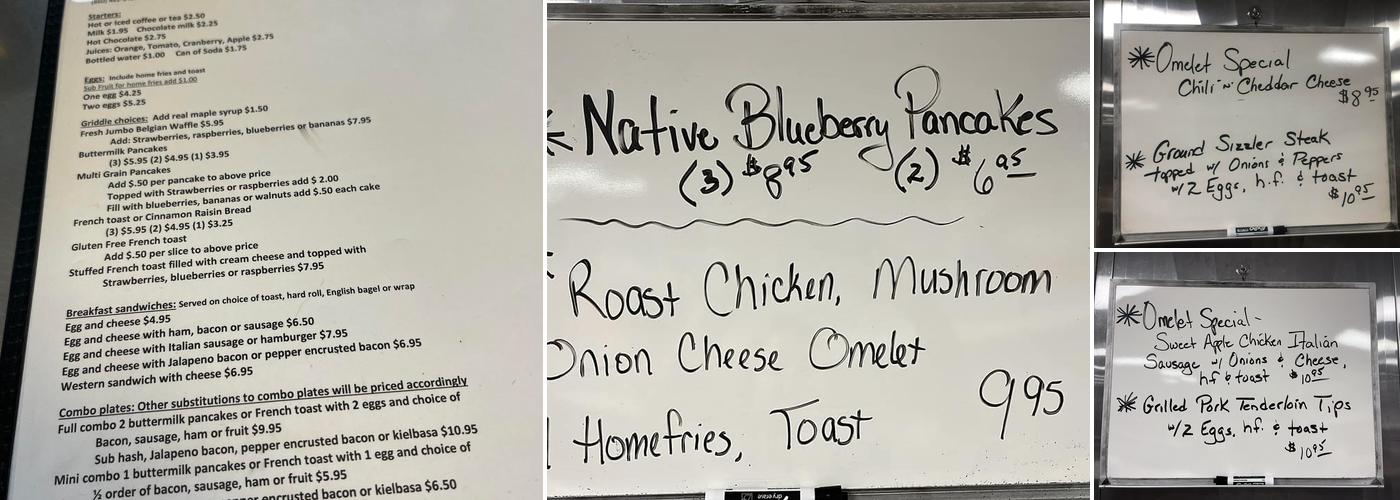 Starters:
Hot or Iced coffee or tea $2.50
Milk $1.95 Chocolate milk $2.25
Hot Chocolate $2.75
Juices: Orange, Tomato, Cranberry, Apple $2.75
Bottled water $1.00 Can of Soda $1.75
Eggs: Include home fries and toast
Sub Fruit for home fries add $1.00
One egg $4.25
Two eggs $5.25
Griddle choices: Add real maple syrup $1.50
Fresh Jumbo Belgian Waffle $5.95
Add: Strawberries, raspberries, blueberries or bananas $7.95
Buttermilk Pancakes
(3) $5.95 (2) $4.95 (1) $3.95
Multi Grain Pancakes
Add $.50 per pancake to above price
Topped with Strawberries or raspberries add $ 2.00
Fill with blueberries, bananas or walnuts add $.50 each cake
French toast or Cinnamon Raisin Bread
(3) $5.95 (2) $4.95 (1) $3.25
Gluten Free French toast
Add $.50 per slice to above price
Stuffed French toast filled with cream cheese and topped with
Strawberries, blueberries or raspberries $7.95
Breakfast sandwiches: Served on choice of toast, hard roll, English bagel or wrap
Egg and cheese $4.95
Egg and cheese with ham, bacon or sausage $6.50
Egg and cheese with Italian sausage or hamburger $7.95
Egg and cheese with Jalapeno bacon or pepper encrusted bacon $6.95
Western sandwich with cheese $6.95
Combo plates: Other substitutions to combo plates will be priced accordingly
Full combo 2 buttermilk pancakes or French toast with 2 eggs and choice of
Bacon, sausage, ham or fruit $9.95
Sub hash, Jalapeno bacon, pepper encrusted bacon or kielbasa $10.95
Mini combo 1 buttermilk pancakes or French toast with 1 egg and choice of
½ order of bacon, sausage, ham or fruit $5.95
encrusted bacon or kielbasa $6.50
Native Blueberry Pancakes
(3) $8.95 (2) $6.95
Roast Chicken, Mushroom
Onion Cheese Omelet
Homefries, Toast 9.95
* Omelet Special
Chili 'n' Cheddar Cheese
$8.95
* Ground Sizzler Steak
topped w/ Onions & Peppers
w/2 Eggs, h.f. & toast
$10.95
* Omelet Special -
Sweet Apple Chicken Italian
Sausage w/ Onions & Cheese,
hf & toast $10.95
* Grilled Pork Tenderloin Tips
w/2 Eggs, hf. & toast
$10.95